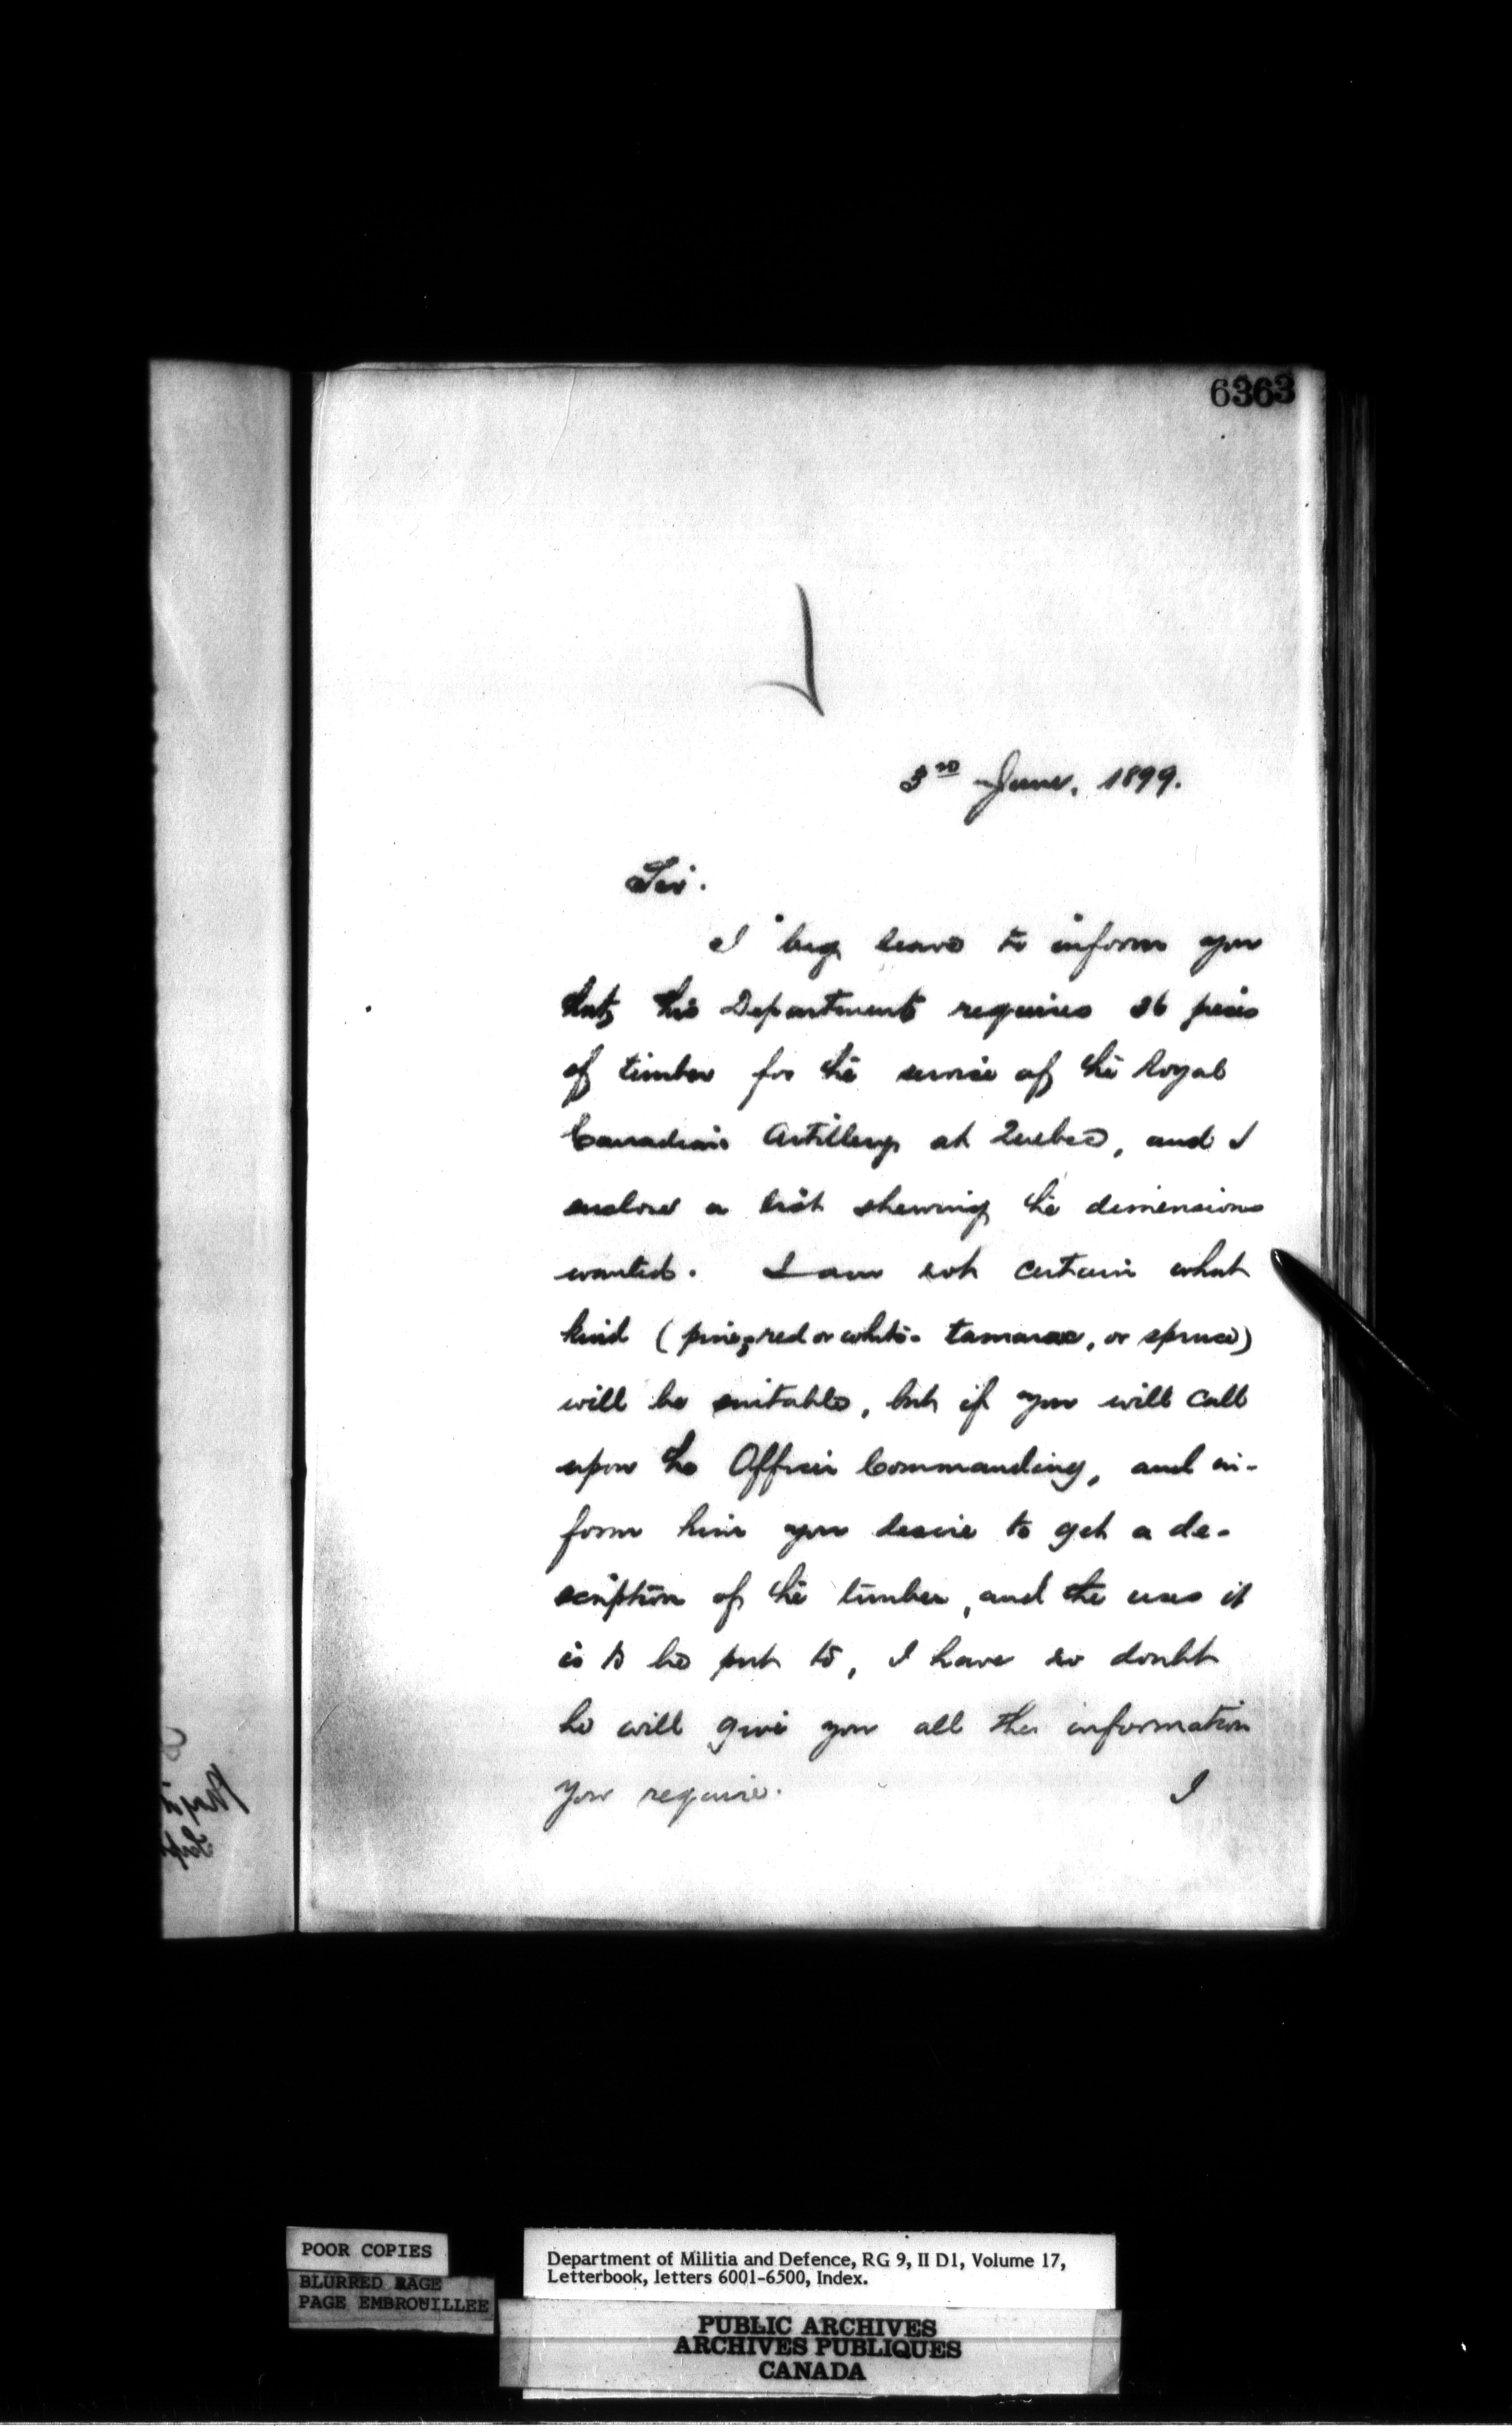 6363
3rd June, 1899.
Sir.
I beg leave to inform you
that this Department requires 26 pieces
of timber for the service of the Royal
Canadian Artillery at Quebec, and I
enclose a list shewing the dimensions
wanted. I am not certain what
kind (pine, red or white - tamarac, or spruce)
will be suitable, but if you will call
upon the Officer Commanding, and in-
form him you desire to get a de-
scription of the timber, and the uses it
is to be put to, I have no doubt
he will give you all the information
you require. I
POOR COPIES
BLURRED PAGE
PAGE EMBROUILLEE
Department of Militia and Defence, RG 9, II D1, Volume 17,
Letterbook, letters 6001-6500, Index.
PUBLIC ARCHIVES
ARCHIVES PUBLIQUES
CANADA